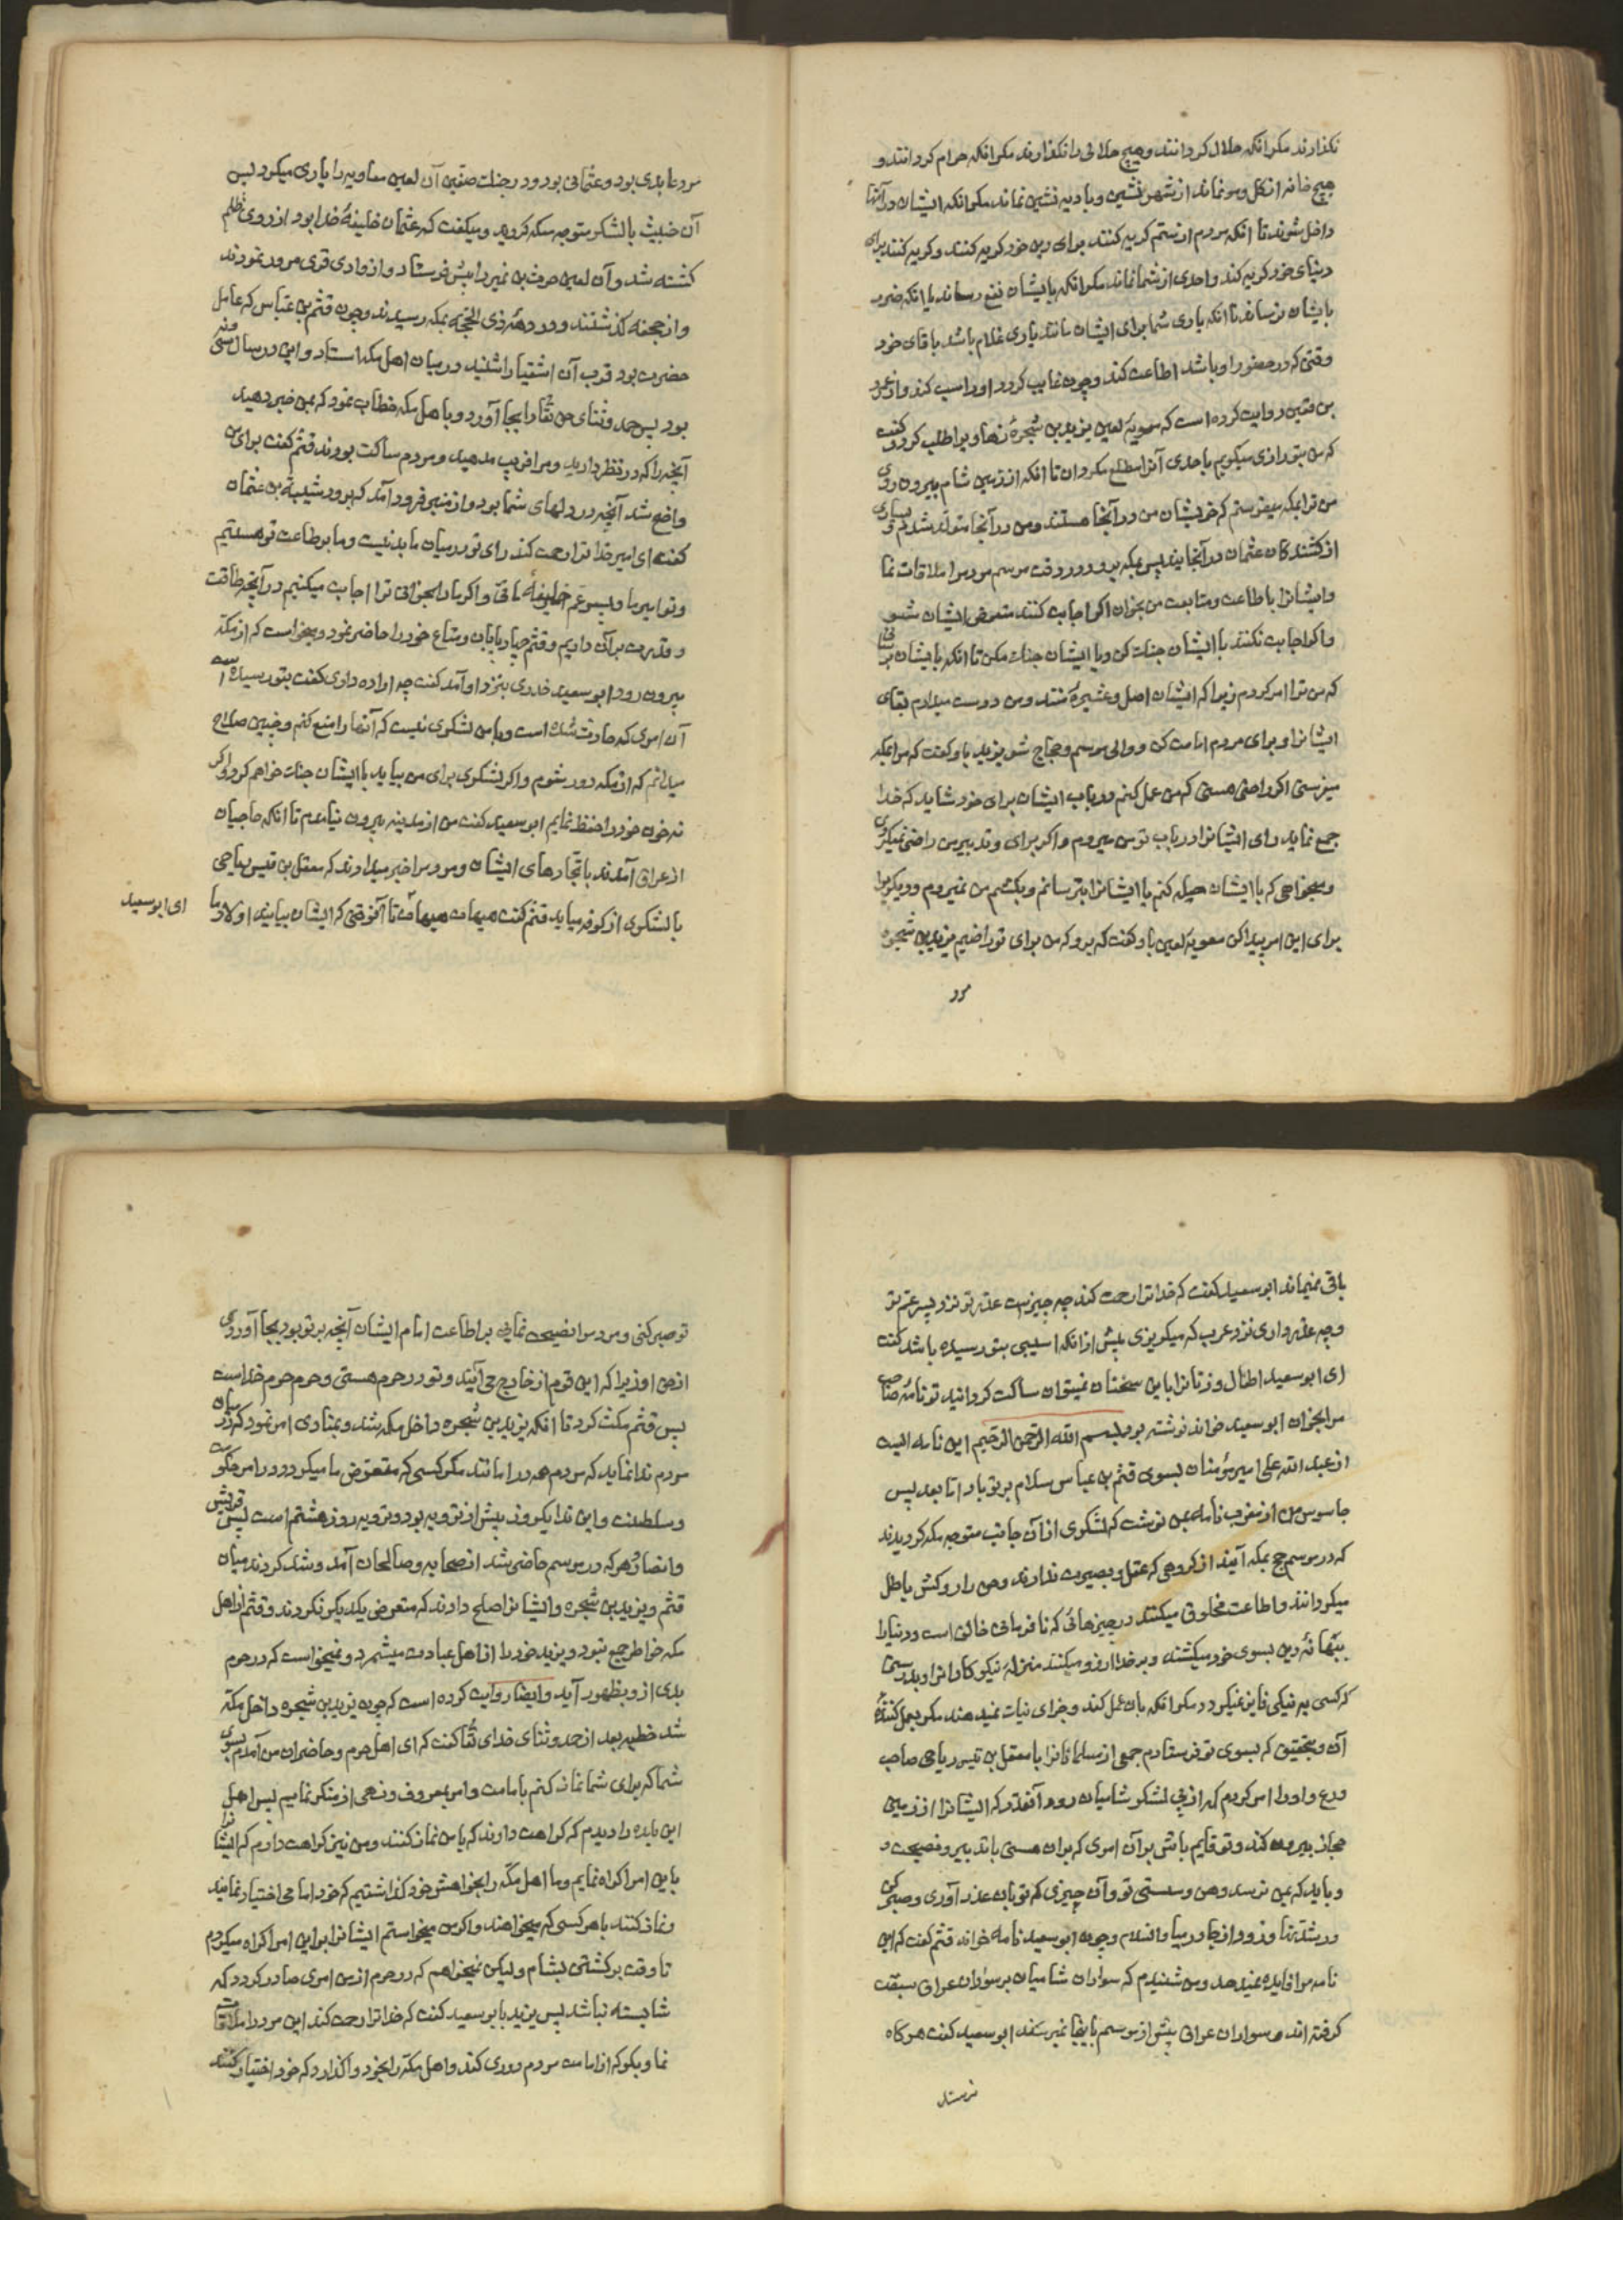 نکذارند مکر انکه حلال کردانند و هیچ حلالی را نکذارند مکر انکه حرام کردانند و
هیچ خانه از کل و مو نماند از شهر نشین و بادیه نشین نماند مکر انکه ایشان در آنها
داخل شوند تا انکه مردم از ستم کریه کنند برای دین خود کریه کنند و کریه کنند برای
دنیای خود کریه کند و احدی از شما نماند مکر انکه بایشان نفع رساند یا انکه ضرر
بایشان نرساند تا انکه یاری شما برای ایشان مانند یاری غلام باشد باقای خود
وقتی که در حضور او باشد اطاعت کند و چون غایب کردد او را سب کند و از عمرو
بن قعین روایت کرده است که معویهٔ لعین یزید بن شجرهٔ رهاوی را طلب کرد و کفت
که من بتو رازی میکویم باحدی آنرا مطلع مکردان تا انکه از زمین شام بیرون روی
من ترا بمکه میفرستم که خویشان من در آنجا هستند و من در آنجا متولد شدم و بسیاری
از کشندکان عثمان در آنجایند پس بمکه برو و در وقت موسم مردم را ملاقات نما
و ایشانرا باطاعت و متابعت من بخوان اکر اجابت کنند متعرض ایشان مشو
و اکر اجابت نکنند با ایشان جنک کن و با ایشان جنک مکن تا انکه بایشان برسانی
که من ترا امر کردم زیرا که ایشان اصل و عشیرهٔ منند و من دوست میدارم بقای
ایشانرا و برای مردم امامت کن و والی موسم و حجاج شو یزید باو کفت که مرا بمکه
میفرستی اکر راضی هستی که من عمل کنم در باب ایشان برای خود شاید که خدا
جمع نماید رای ایشانرا در باب تو من میروم و اکر برای و تدبیر من راضی نمیکردی
و میخواهی که با ایشان حیله کنم یا ایشانرا بترسانم و بکشم من نمیروم و دیکریرا
برای این امر پیدا کن معویهٔ لعین باو کفت که برو که من برای تو راضیم یزید بن شجره
مرد
مرد عابدی بود و عثمانی بود و در جنک صفین آن لعین معاویه را یاری میکرد پس
آن خبیث با لشکر متوجه مکه کردید و میکفت که عثمان خلیفهٔ خدا بود از روی ظلم
کشته شد و آن لعین حرث بن نمیر را پیش فرستاد و از وادی قری مرور نمودند
و از جحفه کذشتند و در دههٔ ذی الحجّه بمکه رسیدند و چون قثم بن عباس که عامل
حضرت بود قرب آن اشقیا را شنید در میان اهل مکه استاد و این در سال سی و نه
بود پس حمد و ثنای حق تعا را بجا آورد و باهل مکه خطاب نمود که بمن خبر دهید
آنچه را که در نظر دارید و مرا فریب مدهید و مردم ساکت بودند قثم کفت برای من
واضح شد آنچه در دلهای شما بود و از منبر فرود آمد که برود شیبة بن عثمان
کفت ای امیر خدا ترا رحمت کند رای تو در میان ما بد نیست و ما بر طاعت تو هستیم
و تو امیر ما و پسر عم خلیفهٔ مائی و اکر ما را بخوانی ترا اجابت میکنیم در آنچه طاقت
و قدرت بر آن داریم و قثم چهار پایان و متاع خود را حاضر نمود و میخواست که از مکه
بیرون رود ابو سعید خدری بنزد او آمد کفت چه اراده داری کفت بتو رسیده است
آن امری که حادث شده است و با من لشکری نیست که آنها را منع کنم و چنین صلاح
میدانم که از مکه دور شوم و اکر لشکری برای من بیاید با ایشان جنک خواهم کرد و اکر
نه خون خود را حفظ نمایم ابو سعید کفت من از مدینه بیرون نیامدم تا انکه حاجیان
از عراق آمدند با تجّارهای ایشان و مردم را خبر میدادند که معقل بن قیس ریاحی
با لشکری از کوفه میاید قثم کفت هیهات هیهات تا آنوقتی که ایشان بیایند اولاد ما
ای ابو سعید
باقی نمیماند ابو سعید کفت که خدا ترا رحمت کند چه چیز است عذر تو نزد پسر عم تو
و چه عذر داری نزد عرب که میکریزی پیش از انکه اسیبی بتو رسیده باشد کفت
ای ابو سعید اطفال و زنانرا باین سخنان نمیتوان ساکت کردانید تو نامهٔ صاحب
مرا بخوان ابو سعید خواند نوشته بود بسم الله الرّحمن الرّحیم این نامه ایست
از عبد الله علی امیر مؤمنان بسوی قثم بن عباس سلام بر تو باد اما بعد پس
جاسوس من از مغرب نامه بمن نوشت که لشکری از آن جانب متوجه مکه کردیدند
که در موسم حج بمکه آیند از کروهی که عقل و بصیرت ندارند و حق را روکش باطل
میکردانند و اطاعت مخلوق میکنند در چیزهائی که نا فرمانی خالق است و دنیا را
ببهانهٔ دین بسوی خود میکشند و بر خدا ارزو میکنند منزلهٔ نیکوکارانرا و بدرستی
که کسی به نیکی فایز نمیکردد مکر انکه بان عمل کند و جزای نیات نمیدهند مکر بعمل کنندهٔ
آن و بتحقیق که بسوی تو فرستادم جمعی از مسلمانانرا با معقل بن قیس ریاحی صاحب
ورع و او را امر کردم که از پی لشکر شامیان رود آنقدر که ایشانرا از زمین
حجاز بیرون کند و تو قایم باش بر آن امری که بران هستی با تدبیر و نصیحت و
و باید که بمن نرسد وهن و سستی تو و آن چیزی که تو بان عذر آوری و صبر کن
در شدتها و زود از جا در میا و السلام و چون ابو سعید نامه خواند قثم کفت که این
نامه مرا فایده نمیدهد و من شنیدم که سواران شامیان بر سواران عراق سبقت
کرفته اند و سواران عراق پیش از موسم باینجا نمیرسند ابو سعید کفت هر کاه
تو صبر کنی و مردم را نصیحت نمایی بر اطاعت امام ایشان آنچه بر تو بود بجا آوردی
از حق او زیرا که این قوم از خارج می آیند و تو در حرم هستی و حرم حرم خداست
پس قثم مکث کرد تا انکه یزید بن شجره داخل مکه شد و منادی امر نمود که در میان
مردم ندا نماید که مردم همه در امانند مکر کسی که متعرّض ما میکردد در امر حکومت
و سلطنت و این ندا یکروز پیش از ترویه بود و ترویه روز هشتم است پس قریش
و انصار و هر که در موسم حاضر شد از صحابه و صالحان آمد و شد کردند میان
قثم و یزید بن شجره و ایشانرا صلح دادند که متعرض یکدیکر نکردند و قثم از اهل
مکه خاطر جمع نبود و یزید خود را از اهل عبادت میشمرد و نمیخواست که در حرم
بدی از و بظهور آید و ایضا روایت کرده است که چون یزید بن شجره داخل مکه
شد خطبه بعد از حمد و ثنای خدای تعا کفت که ای اهل حرم و حاضران من آمدم بسوی
شما که برای شما نماز کنم بامامت و امر بمعروف و نهی از منکر نمایم پس اهل
این بلده را دیدم که کراهت دارند که با من نماز کنند و من نیز کراهت دارم که ایشانرا
باین امر اکراه نمایم و ما اهل مکه را بخواهش خود کذاشتیم که خود امامی اختیار نمایند
و نماز کنند با هر کسی که میخواهند و اکر من میخواستم ایشانرا بر این امر اکراه میکردم
تا وقت برکشتن بشام و لیکن نمیخواهم که در حرم از من امری صادر کردد که
شایسته نباشد پس یزید با بو سعید کفت که خدا ترا رحمت کند این مرد را ملاقات
نما و بکو که از امامت مردم دوری کند و اهل مکه را بخود واکذارد که خود اختیار کنند